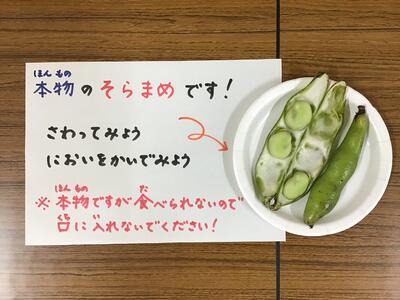 ほんもの
本物のそらまめです!
さわってみよう
においをかいでみよう
ほんもの た
※本物ですが食べられないので
口に入れないでください!